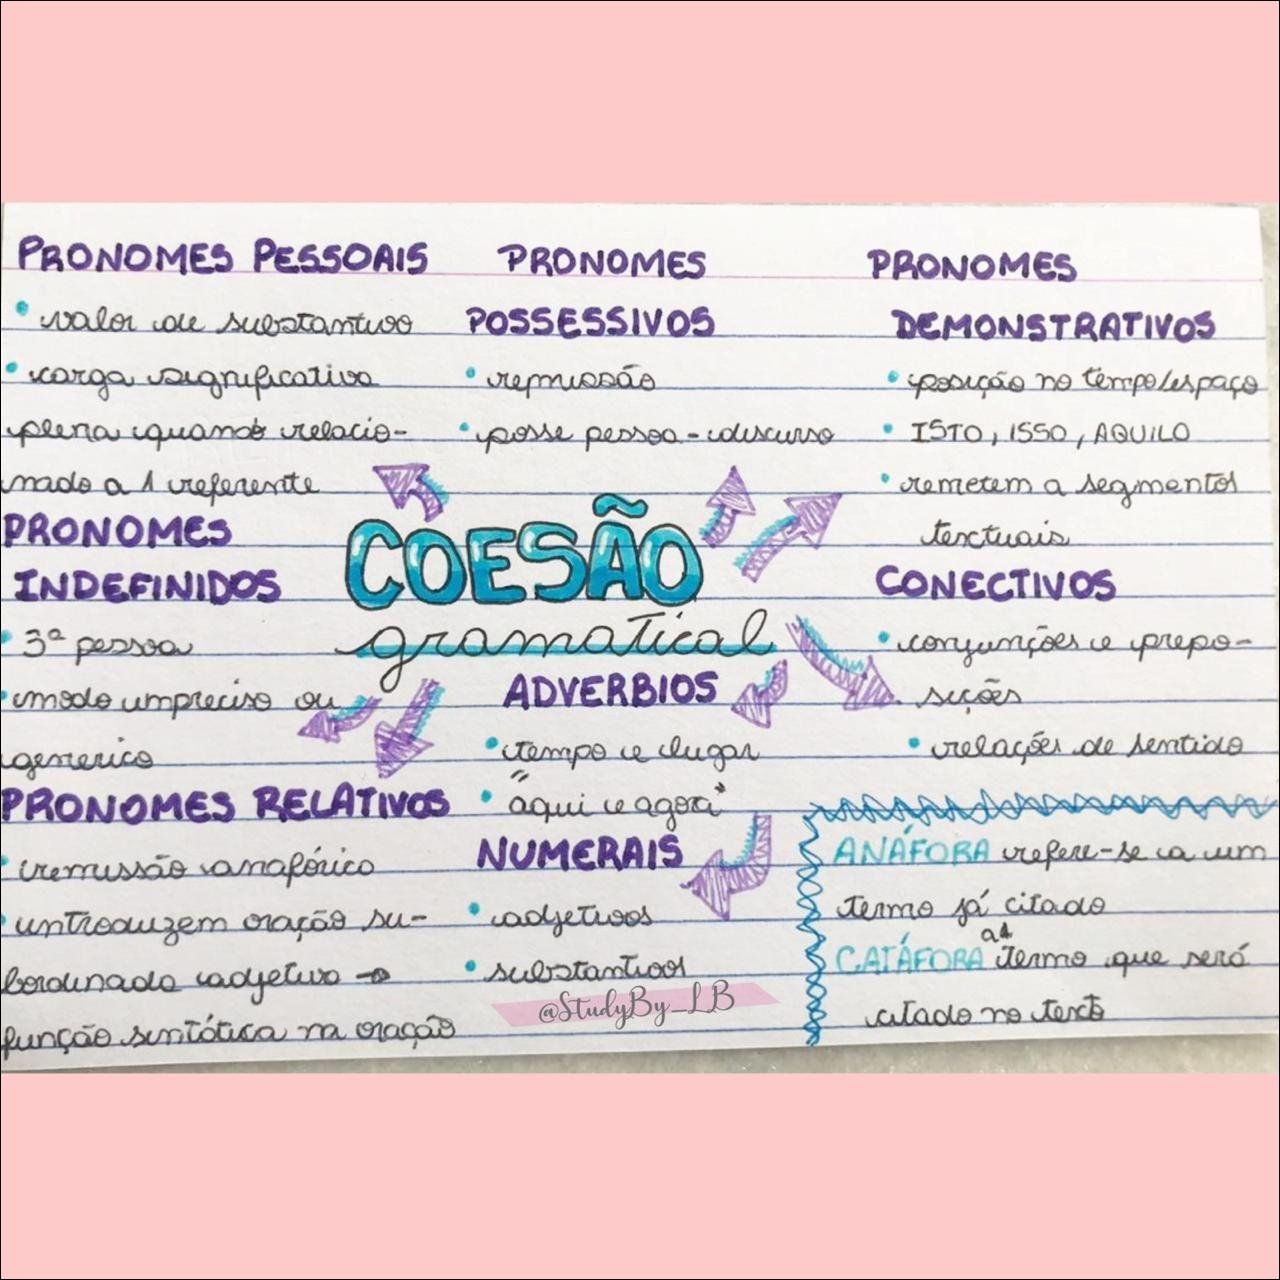 PRONOMES PESSOAIS
• valor de substantivo
• carga significativa
plena quando relacio-
nado a 1 referente
PRONOMES
POSSESSIVOS
• remissão
• posse pessoa-discurso
PRONOMES
DEMONSTRATIVOS
• posição no tempo/espaço
• ISTO, ISSO, AQUILO
• remetem a segmentos
textuais
COESÃO
gramatical
PRONOMES
INDEFINIDOS
• 3ª pessoa
• modo impreciso ou
generico
CONECTIVOS
• conjunções e prepo-
sições
• relações de sentido
ADVERBIOS
• tempo e lugar
• "aqui e agora"
PRONOMES RELATIVOS
• remissão anafórico
• introduzem oração su-
bordinada adjetiva →
função sintática na oração
NUMERAIS
• adjetivos
• substantivos
@StudyBy_LB
ANÁFORA refere-se a um
termo já citado
CATÁFORA a 1 termo que será
citado no texto